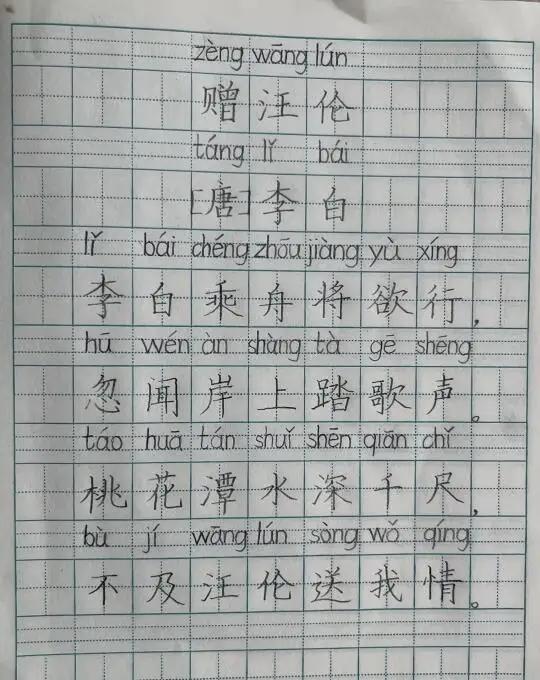 zèng wāng lún
赠汪伦
táng lǐ bái
[唐]李白
lǐ bái chéng zhōu jiàng yù xíng
李白乘舟将欲行，
hū wén àn shàng tà gē shēng
忽闻岸上踏歌声。
táo huā tán shuǐ shēn qiān chǐ
桃花潭水深千尺，
bù jí wāng lún sòng wǒ qíng
不及汪伦送我情。